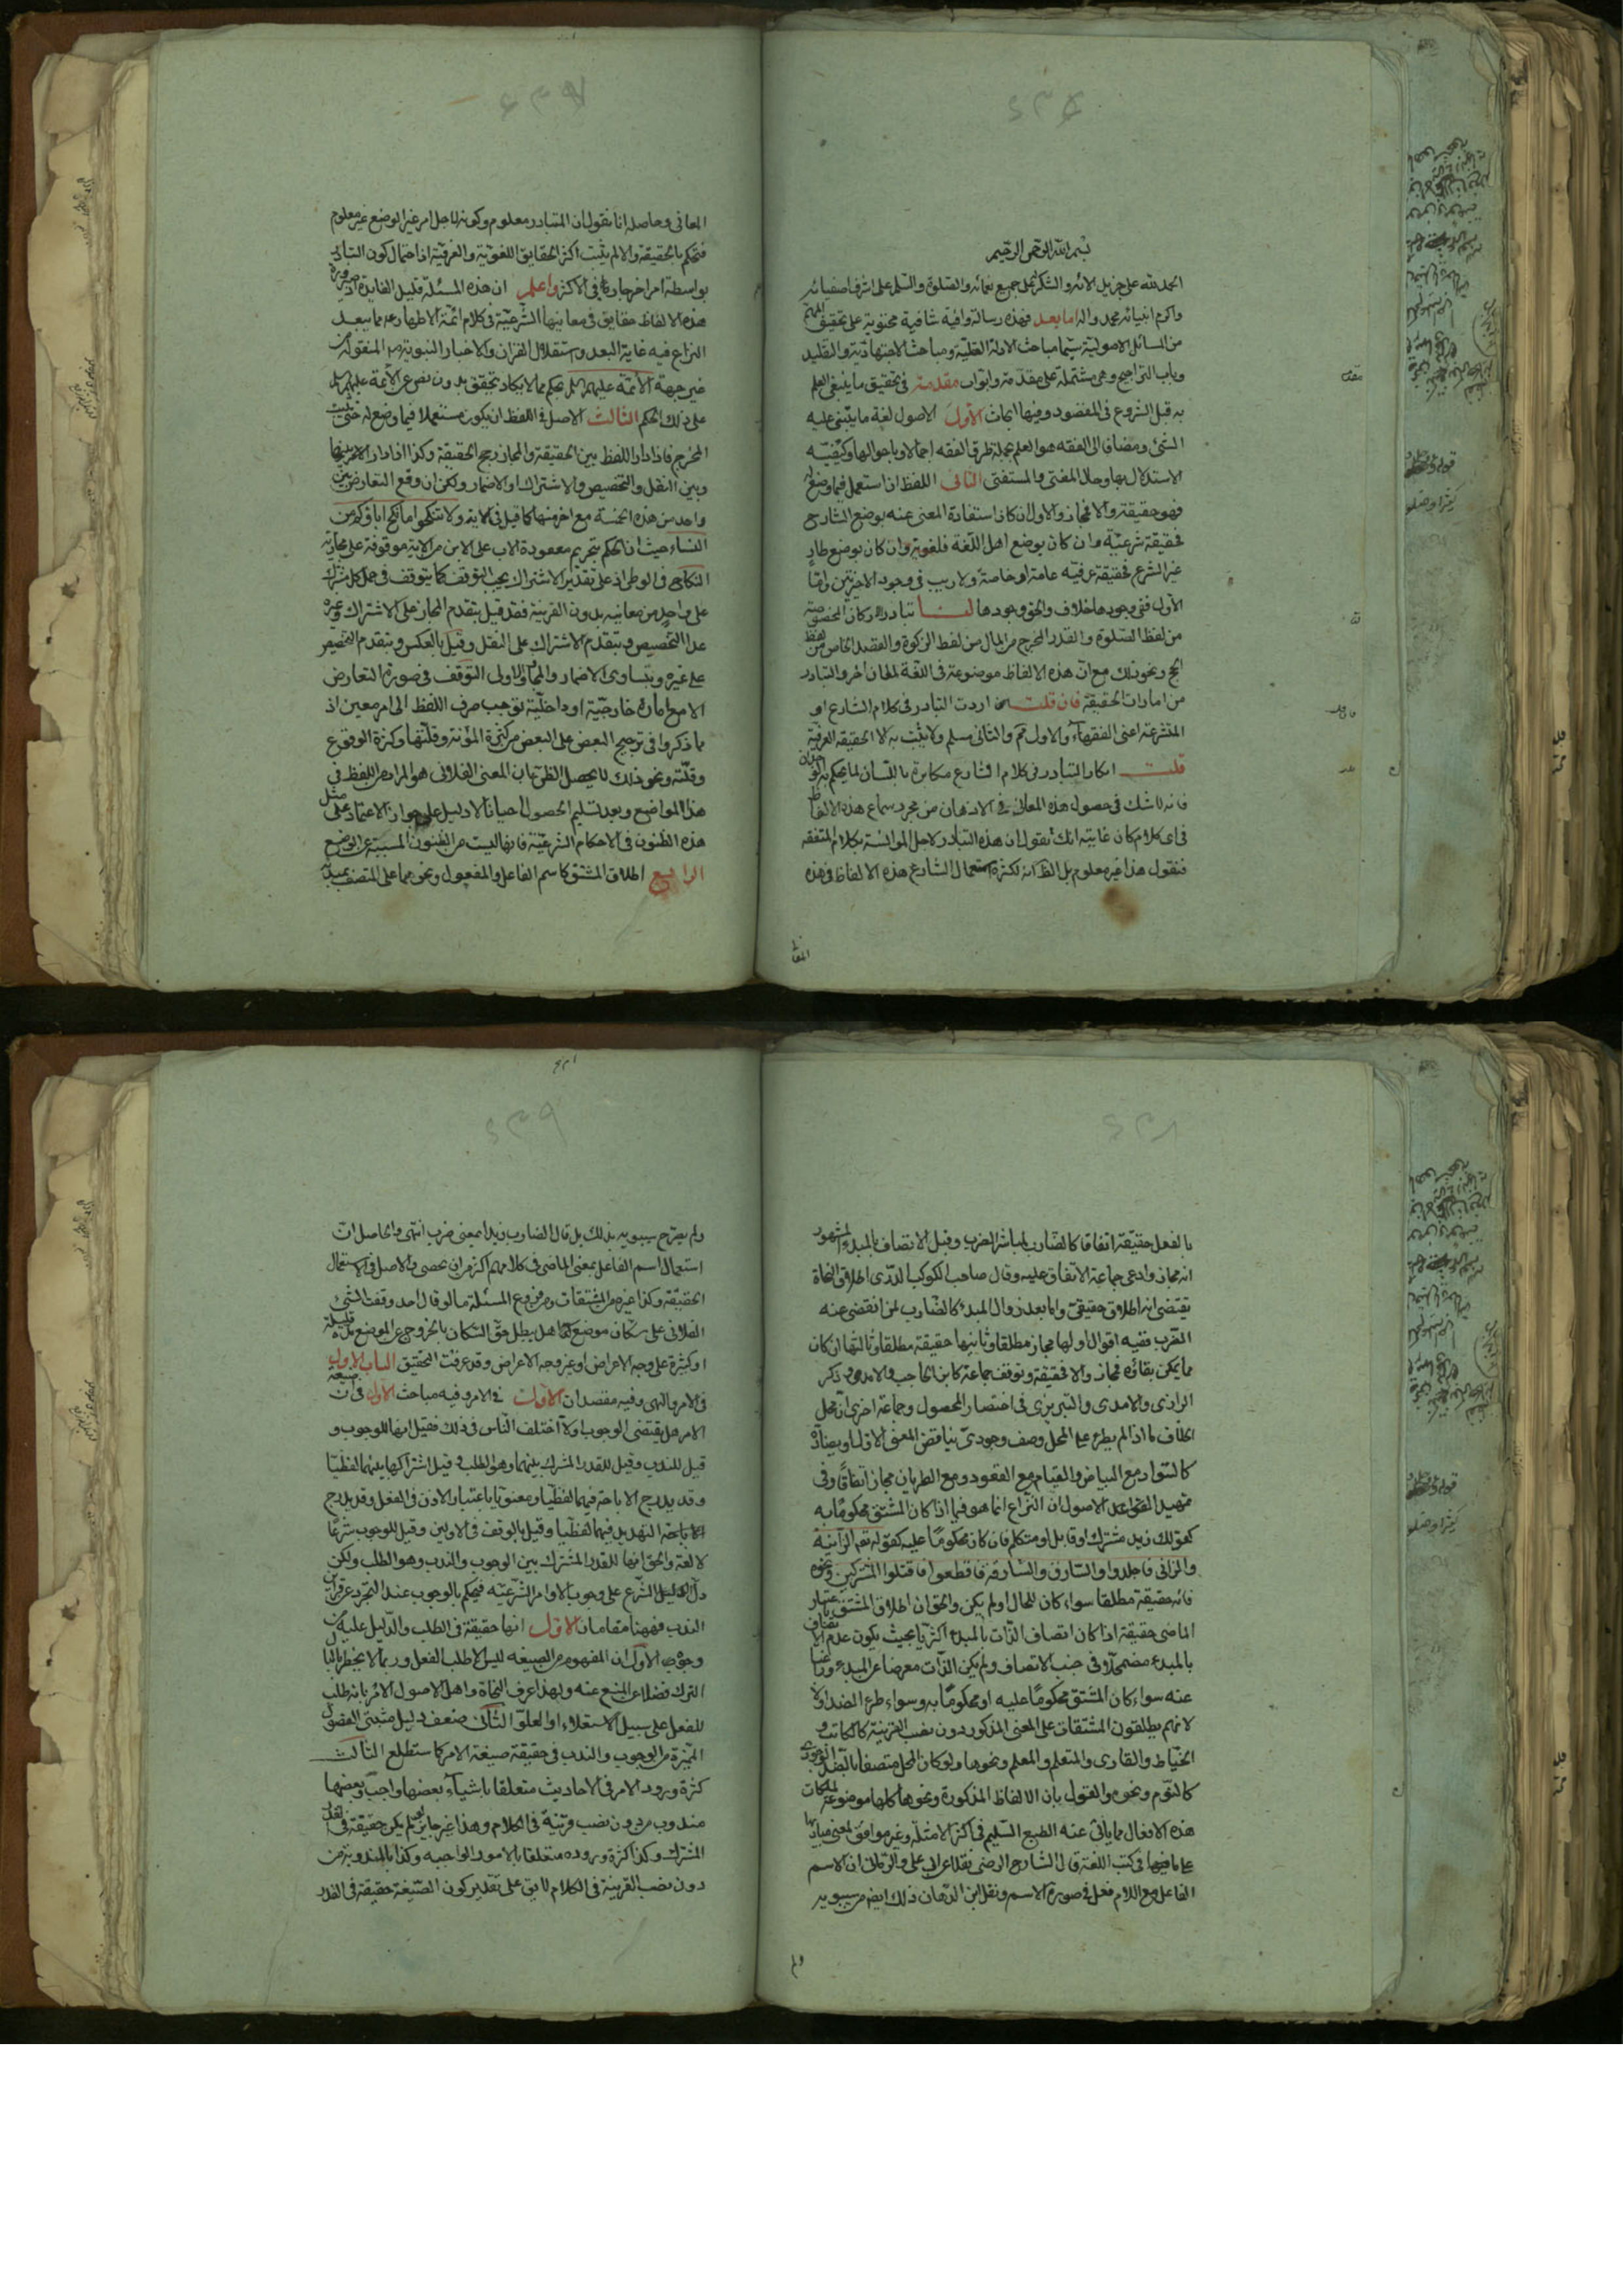 بسم الله الرحمن الرحيم
الحمد لله على جزيل الائه والشكر على جميع نعمائه والصلوة والسلم على اشرف اصفيائه
واكرم انبيائه محمد واله اما بعد فهذه رسالة وافية شافية محتوية على تحقيق المهم
من المسائل الاصولية سيما مباحث الادلة العقلية ومباحث الاجتهادية والتقليد
وباب التراجيح وهى مشتملة على مقدمة وابواب مقدمة فى تحقيق ما ينبغى العلم
به قبل الشروع فى المقصود وفيها ابحاث الأول الاصول لغة ما يبتنى عليه
الشئ ومضافا الى الفقه هو العلم بجملة طرق الفقه اجمالا وباحوالها وكيفية
الاستدلال بها وحال المفتى والمستفتى الثانى اللفظ ان استعمل فيما وضع له
فهو حقيقة والا فمجاز والاول ان كان استفادة المعنى عنه بوضع الشارح
فحقيقة شرعية وان كان بوضع اهل اللغة فلغوية وان كان بوضع طار
غير الشرع فحقيقة عرفية عامة او خاصة ولا ريب فى وجود الاخيرتين واما
الأول ففى وجودها خلاف والحق وجودها لنا تبادر الاركان المخصوصة
من لفظ الصلوة والقدر المخرج من المال من لفظ الزكوة والقصد الخاص من لفظ
الحج ونحو ذلك مع ان هذه الالفاظ موضوعة فى اللغة لمعان أخر والتبادر
من امارات الحقيقة فان قلت ان اردت التبادر فى كلام الشارع او
المتشرعة اعنى الفقهاء والاول تم والثانى مسلم ولا يثبت به الا الحقيقة العرفية
قلت انكار التبادر فى كلام الشارع مكابرة باللسان لما يحكم به الوجدان
فانه لا شك فى حصول هذه المعانى فى الاذهان من مجرد سماع هذه الالفاظ
فى اى كلام كان غايته انك تقول ان هذه التبادر لاجل الموانسة بكلام المتفقه
فنقول هذا غير معلوم بل الظ انه لكثرة استعمال الشارع هذه الالفاظ فى هذه
المعا
المعانى وحاصله انا نقول ان المتبادر معلوم وكونه لاجل امر غير الوضع غير معلوم
فنحكم بالحقيقة والا لم يثبت اكثر الحقايق اللغوية والعرفية اذ احتمال كون التبادر
بواسطة امر اخر جار فى الاكثر واعلم ان هذه المسئلة قليل الفايدة اذ صيرورة
هذه الالفاظ حقايق فى معانيها الشرعية فى كلام ائمة الاطهار عم مما يبعد
النزاع فيه غاية البعد واستقلال القران والاخبار النبوية ص المنقولة من
غير جهة الأئمة عليهم السلم بحكم مما لا يكاد يتحقق بدون نص عن الائمة عليهم السلم
على ذلك الحكم الثالث الاصل فى اللفظ ان يكون مستعملا فيما وضع له حتى يثبت
المخرج فاذا دار اللفظ بين الحقيقة والمجاز رجح الحقيقة وكذا اذا دار الامر بينها
وبين النقل والتخصيص والاشتراك والاضمار ولكن ان وقع التعارض بين
واحد من هذه الخمسة مع اخر منها كما قيل فى الاية ولا تنكحوا ما نكح اباؤكم من
النساء حيث ان الحكم بتحريم معقودة الاب على الابن من الاية موقوفة على مجازية
النكاح فى الوطى اذ على تقدير الاشتراك يجب التوقف كما يتوقف فى حمل كل مشترك
على واحد من معانيه بدون القرينة فقد قيل بتقدم المجاز على الاشتراك وغيره
عدا التخصيص وبتقدم الاشتراك على النقل وقيل بالعكس وبتقدم التخصيص
على غيره وبتساوى الاضمار والمجاز والاولى التوقف فى صورة التعارض
الا مع امارة خارجية او داخلية توجب صرف اللفظ الى امر معين اذ
ما ذكروا فى ترجيح البعض على البعض من كثرة المؤنة وقلتها وكثرة الوقوع
وقلته ونحو ذلك لا يحصل الظن بان المعنى الفلانى هو المراد من اللفظ فى
هذا المواضع وبعد تسليم الحصول احيانا لا دليل على جواز الاعتماد على مثل
هذه الظنون فى الاحكام الشرعية فانها ليست من الظنون المسببة عن الوضع
الرابع اطلاق المشتق كاسم الفاعل والمفعول ونحوهما على المتصف بمبدئه
بالفعل حقيقة اتفاقا كالضارب لمباشر الضرب وقبل الاتصاف بالمبدء المشهور
انه مجاز وادعى جماعة الاتفاق عليه وقال صاحب الكوكب الدرى اطلاق النحاة
يقتضى انه اطلاق حقيقى واما بعد زوال المبدء كالضارب لمن انقضى عنه
الضرب ففيه اقوال اولها مجاز مطلقا وثانيها حقيقة مطلقا وثالثها ان كان
مما يمكن بقاؤه فمجاز والا فحقيقة وتوقف جماعة كابن الحاجب والامدى وذكر
الرازى والامدى والتبريزى فى اختصار المحصول وجماعة اخرى ان محل
الخلاف ما اذا لم يطرء على المحل وصف وجودى يناقض المعنى الاول او يضاده
كالسواد مع البياض والقيام مع القعود ومع الطريان مجاز اتفاقا وفى
تمهيد القواعد الاصول ان النزاع انما هو فيما اذا كان المشتق محكوما به
كقولك زيد مشترك او قايل او متكلم فان كان محكوما عليه كقوله تعم الزانية
والزانى فاجلدوا والسارق والسارقة فاقطعوا فاقتلوا المشركين ونحوه
فانه حقيقة مطلقا سواء كان للحال او لم يكن والحق ان اطلاق المشتق باعتبار
الماضى حقيقة اذا كان اتصاف الذات بالمبدء اكثريا بحيث يكون عدم الاتصاف
بالمبدء مضمحلا فى جنب الاتصاف ولم يكن الذات معرضا عن المبدء وراغبا
عنه سواء كان المشتق محكوما عليه او محكوما به وسواء طرء الضد او لا
لانهم يطلقون المشتقات على المعنى المذكور دون نصب القرينة كالكاتب و
الخياط والقارى والمتعلم والمعلم ونحوها ولو كان المحل متصفا بالضد الوجودى
كالنوم ونحوه والقول بان الالفاظ المذكورة ونحوها كلها موضوعة لملكات
هذه الافعال مما يابى عنه الطبع السليم فى اكثر الامثلة وغير موافق لمعنى مباديها
على ما فى كتب اللغة قال الشارح الرضى نقلا عن ابى على والرمانى ان الاسم
الفاعل مع اللام فعل فى صورة الاسم ونقل ابن الدهان ذلك ايضا من سيبويه
ولم
ولم يصرح سيبويه بذلك بل قال الضارب زيدا بمعنى ضرب انتهى والحاصل ان
استعمال اسم الفاعل بمعنى الماضى فى كلامهم اكثر من ان يحصى والاصل فى الاستعمال
الحقيقة وكذا غيره من المشتقات ومن فروع المسئلة ما لو قال احد وقفت الشئ
الفلانى على سكان موضع كذا هل يبطل حق السكان بالخروج عن الموضع مدة قليلة
او كثيرة على وجه الاعراض او غير وجه الاعراض وقد عرفت التحقيق الباب الاول
فى الامر والنهى وفيه مقصدان الأول فى الامر وفيه مباحث الاول فى ان صيغة
الامر هل يقتضى الوجوب او لا اختلف الناس فى ذلك فقيل انها للوجوب و
قيل للندب وقيل للقدر المشترك بينهما وهو الطلب وقيل اشتراكها بينهما لفظيا
وقد يدرج الاباحة فيهما لفظيا ومعنويا باعتبار الاذن فى الفعل وقد يدرج
الاباحة التهديد فيهما لفظيا وقيل بالوقف فى الاولين وقيل للوجوب شرعا
لا لغة والحق انها للقدر المشترك بين الوجوب والندب وهو الطلب ولكن
دل الدليل الشرع على وجوب الاوامر الشرعية فيحكم بالوجوب عند التجرد عن قراين
الندب فههنا مقامان الاول انها حقيقة فى الطلب والدليل عليه من
وجوه الأول ان المفهوم من الصيغه ليس الا طلب الفعل وربما لا يخطر بالبال
الترك فضلا عن المنع عنه ولهذا عرف النحاة واهل الاصول الامر بانه طلب
للفعل على سبيل الاستعلاء او العلو الثانى ضعف دليل مثبتى الفصول
المميزة من الوجوب والندب فى حقيقة صيغة الامر كما ستطلع الثالث
كثرة ورود الامر فى الاحاديث متعلقا باشياء بعضها واجب وبعضها
مندوب من دون نصب قرينة فى الكلام وهذا غير جايز لو لم يكن حقيقة فى القدر
المشترك وكذا كثرة وروده متعلقا بالامور الواجبه وكذا بالمندوبة من
دون نصب القرينة فى الكلام لا يق على تقدير كون الصيغة حقيقة فى القدر